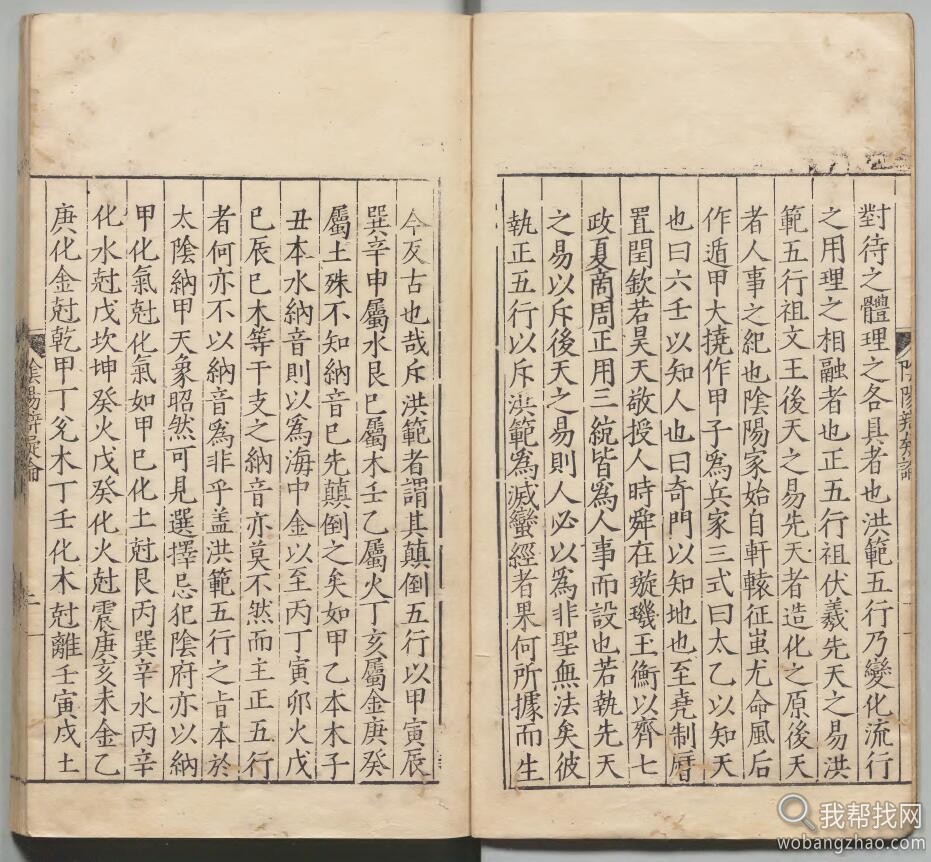 對待之體理之各具者也洪範五行乃變化流行
之用理之相融者也正五行祖伏羲先天之易洪
範五行祖文王後天之易先天者造化之原後天
者人事之紀也陰陽家始自軒轅征蚩尤命風后
作遁甲大撓作甲子為兵家三式曰太乙以知天
也曰六壬以知人也曰奇門以知地也至堯制曆
置閏欽若昊天敬授人時舜在璇璣玉衡以齊七
政夏商周正用三統皆為人事而設也若執先天
之易以斥後天之易則人必以為非聖無法矣彼
執正五行以斥洪範為滅蠻經者果何所據而生
今反古也哉斥洪範者謂其顛倒五行以甲寅辰
巽辛申屬水艮巳屬木壬乙屬火丁亥屬金庚癸
屬土殊不知納音已先顛倒之矣如甲乙本木子
丑本水納音則以為海中金以至丙丁寅卯火戊
巳辰巳木等干支之納音亦莫不然而主正五行
者何亦不以納音為非乎盖洪範五行之旨本於
太陰納甲天象昭然可見選擇忌犯陰府亦以納
甲化氣尅化氣如甲巳化土尅艮丙巽辛水丙辛
化水尅戊坎坤癸火戊癸化火尅震庚亥未金乙
庚化金尅乾甲丁兌木丁壬化木尅離壬寅戌土
陰陽辨疑論
二
我帮找网
wobangzhao.com